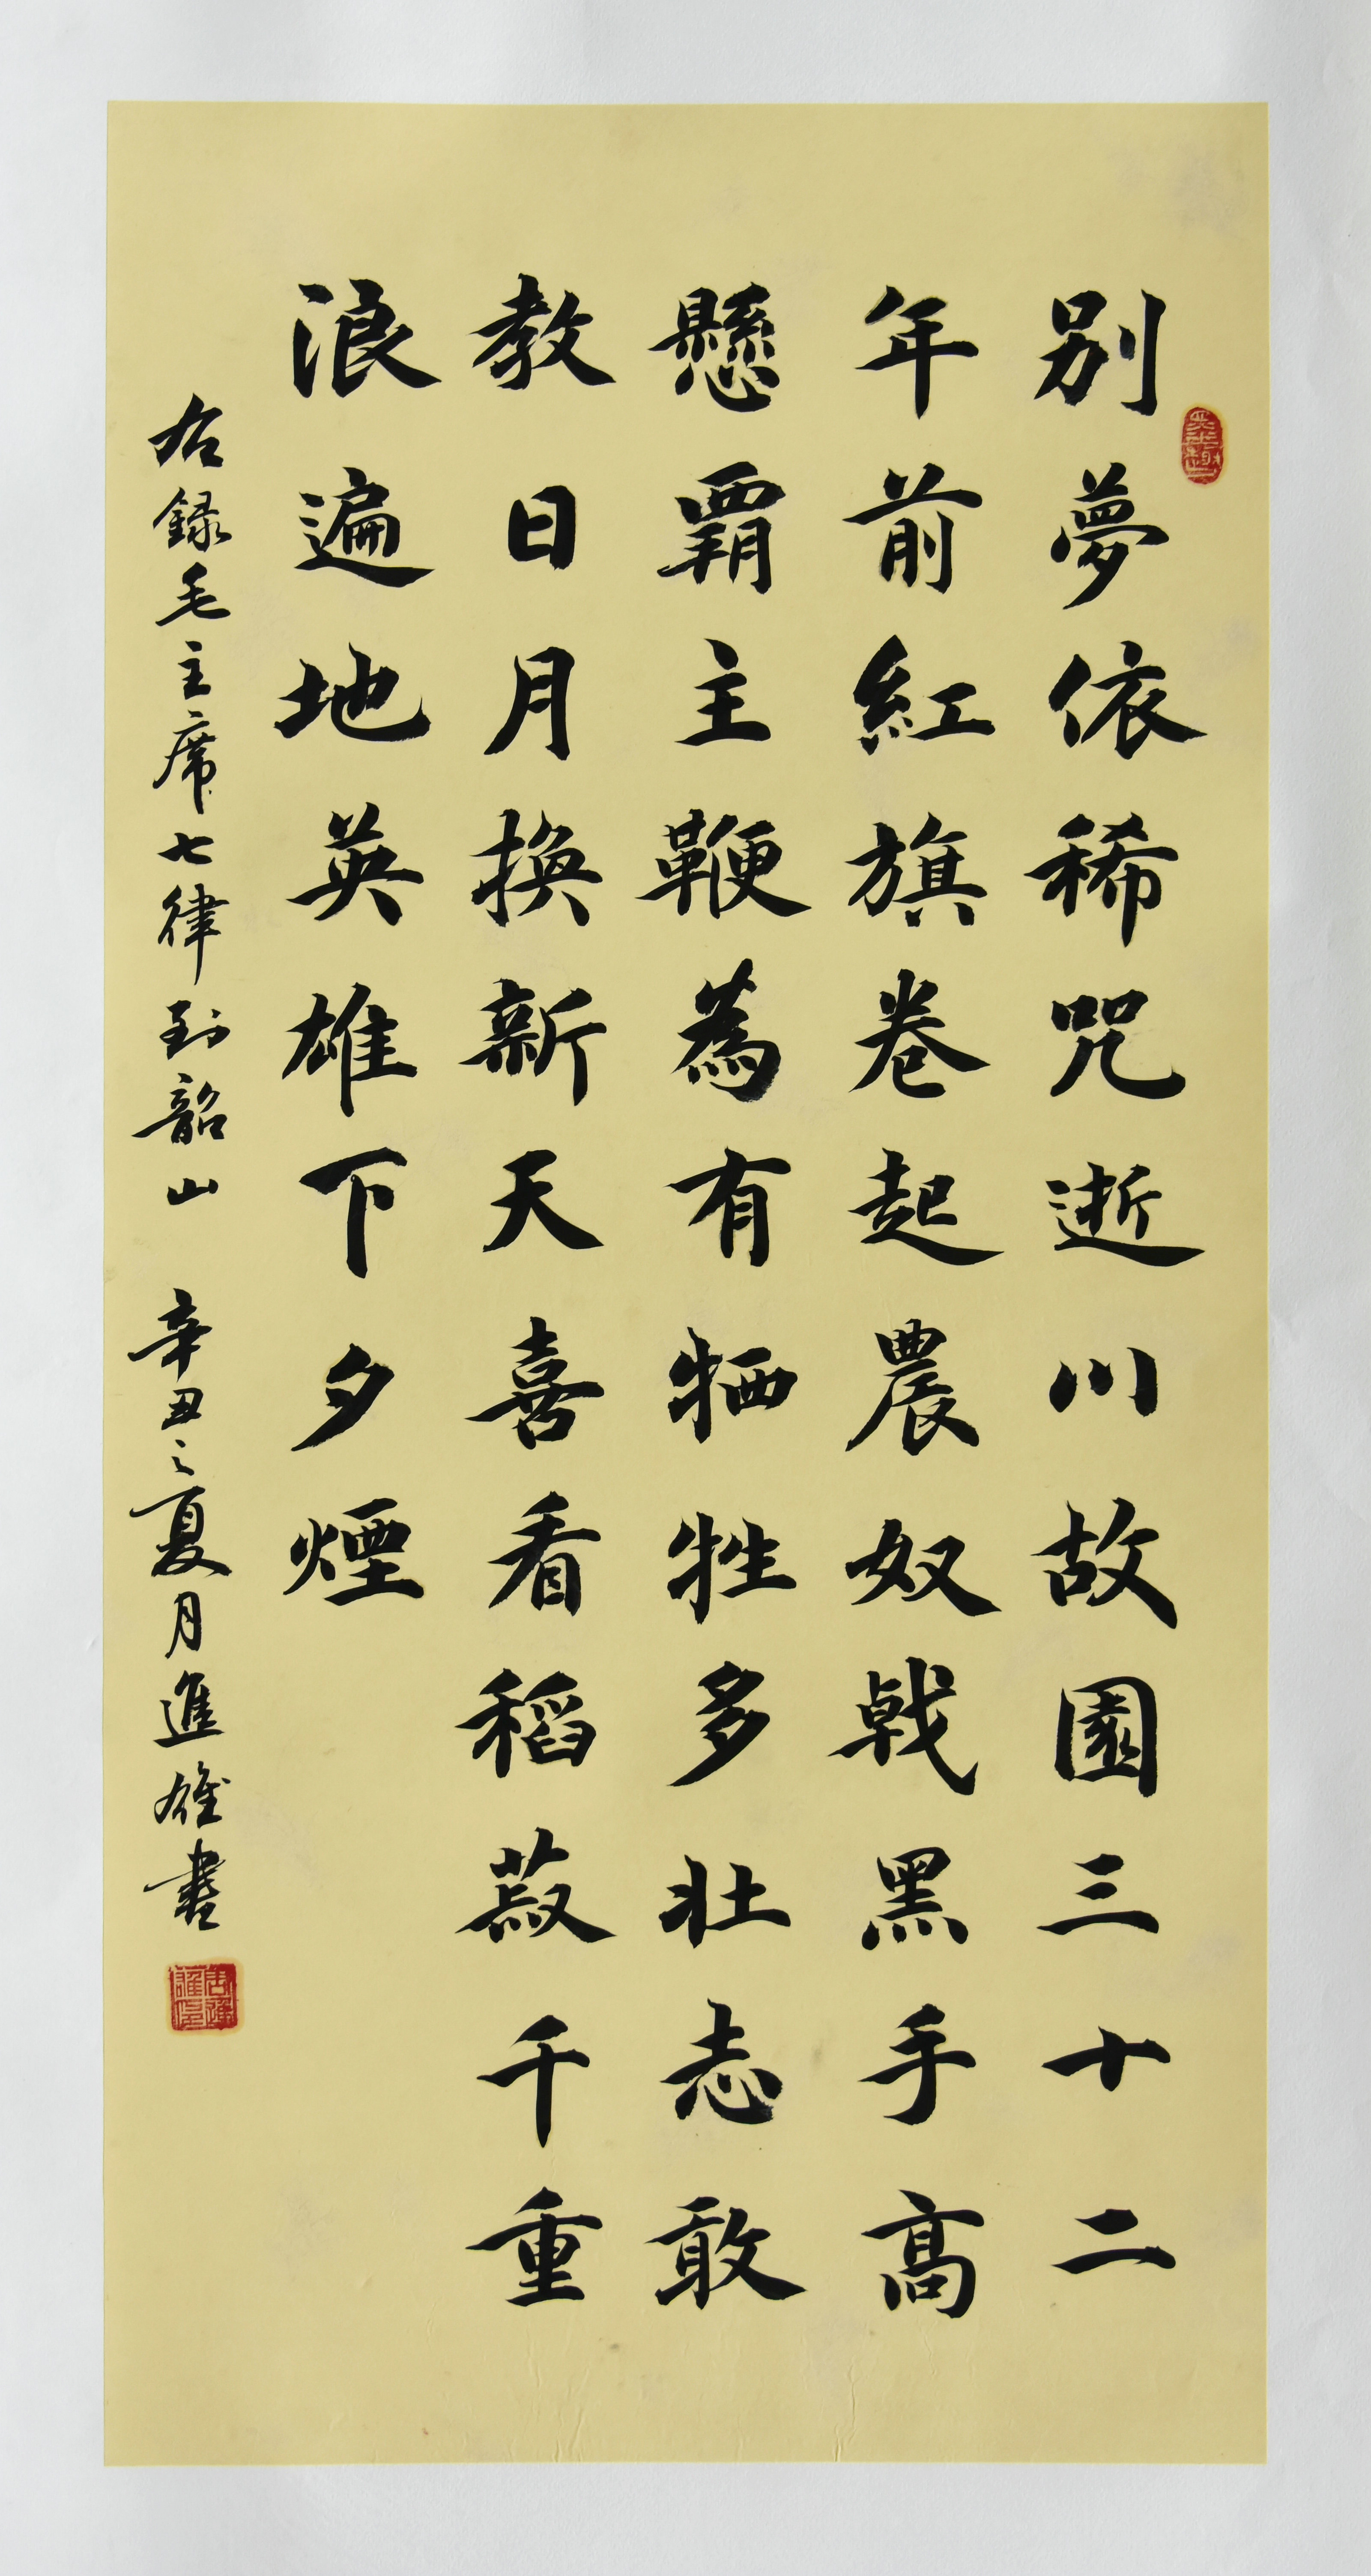 别夢依稀咒逝川故園三十二
年前紅旗卷起農奴戟黑手高
懸覇主鞭為有牺牲多壮志敢
教日月換新天喜看稻菽千重
浪遍地英雄下夕煙
右録毛主席七律到韶山 辛丑之夏月進雄書